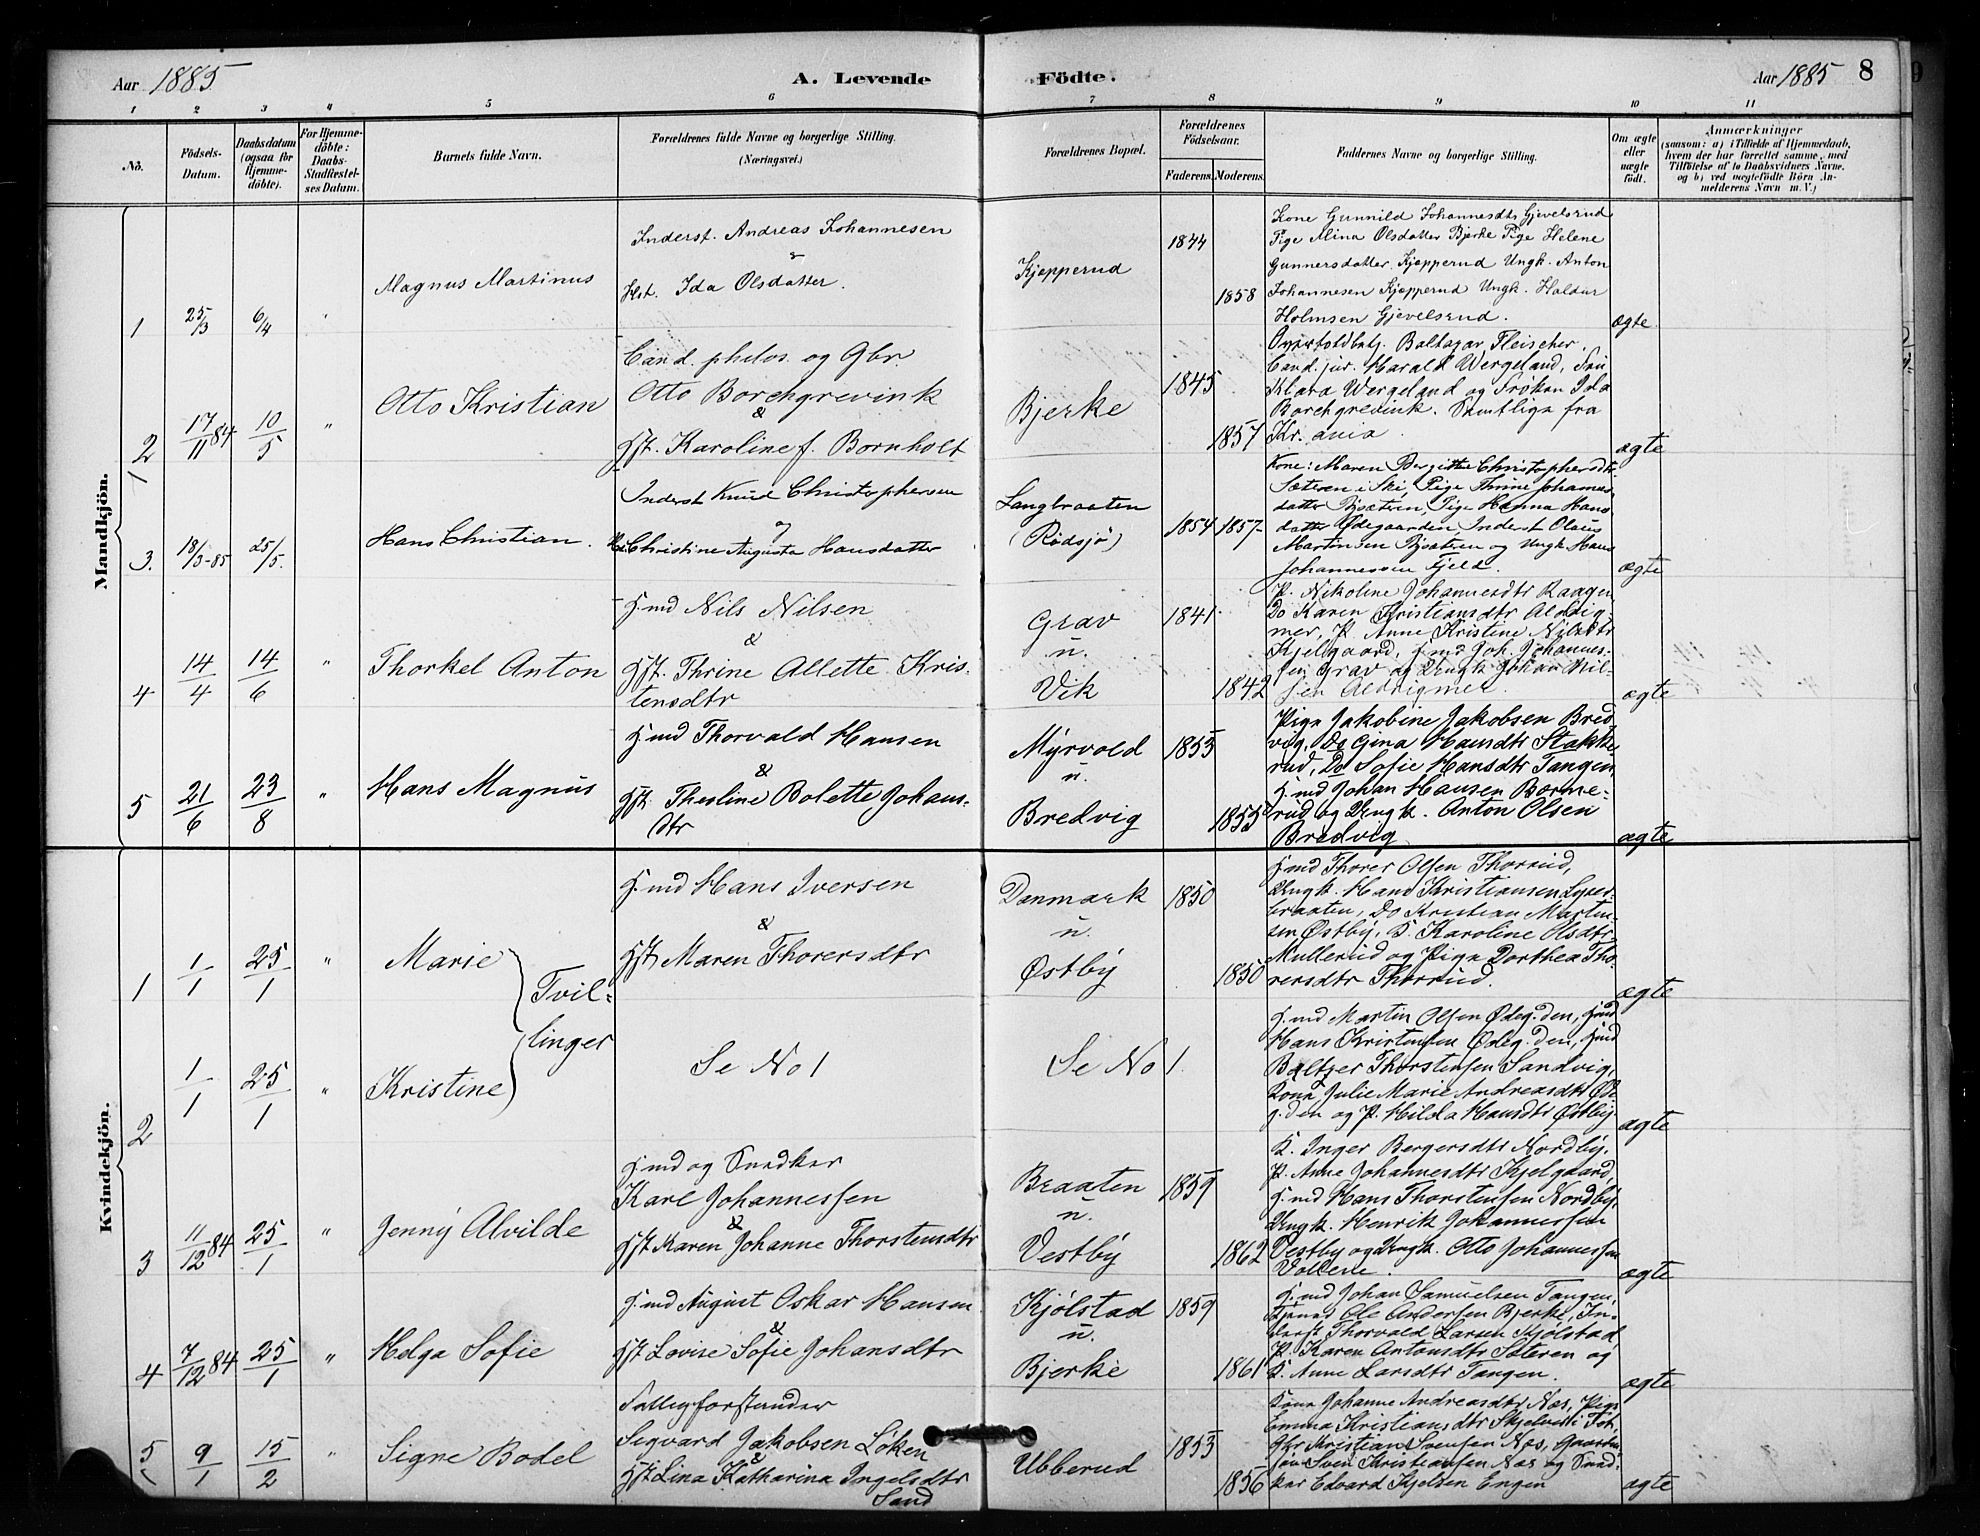 Aar 1885
A. Levende Födte.
Aar 1885 8
1 2 3 4 5 6 7 8 9 10 11
No.
Födsels-Datum.
Daabsdatum (ogsaa for Hjemme-döbte).
For Hjemme-döbte: Daabs-Stadfæstel-ses Datum.
Barnets fulde Navn.
Forældrenes fulde Navne og borgerlige Stilling. (Næringsvei.)
Forældrenes Bopæl.
Forældrenes Födselsaar.
Faderens. Moderens.
Faddernes Navne og borgerlige Stilling.
Om ægte eller uægte födt.
Anmærkninger
(saasom: a) i Tilfælde af Hjemmedaab,
hvem der har forrettet samme, med
Tilföielse af to Daabsvidners Navne.
og b) ved uægtefödte Börn An-
melderens Navn m. V.)
Mandkjön.
1 25/3 6/4 Magnus Martinus
Inderst. Andreas Johannesen
&
Hst. Ida Olsdatter.
Kjepperud 1844 1858
Kone Gunnild Johannesdtr Gjevelsrud
Pige Alina Olsdatter Bjerke Pige Helene
Gunnersdatter Kjepperud Ungk. Anton
Johannesen Kjepperud Ungk. Haldur
Holmsen Gjevelsrud.
ægte
2 17/11 84 10/5 " Otto Kristian
Cand. philos. og Gbr.
Otto Borchgrevink
&
Hst. Karoline f. Bornholt
Bjerke 1845 1857
Overtoldbetj. Baltazar Fleischer,
Cand. jur. Harald Wergeland, Fru
Klara Wergeland og Frøken Ida
Borchgrevink. Samtlige fra
Kr.ania.
ægte
3. 18/3-85 25/5. Hans Christian.
Inderst Knud Christophersen
og
Christine Augusta Hansdatter
Langbraaten
(Rødsjø) 1854 1857
Kone: Maren Bergitte Christophersdtr
Sæteren i Ski, Pige Thrine Johannes
datter Bjsæteren, Pige Hanna Hans
datter Ødegaarden Inderst Olaus
Martinsen Bjsæteren og Ungk Hans
Johannessen Fjeld.
ægte
4 14/4 14/6 " Thorkel Anton
G.md Nils Nilsen
&
Hst. Thrine Allette Kris-
tensdtr
Grav
u.
Vik 1841 1842
P. Nikoline Johannesdtr Raagen
Do Karen Kristiansdtr Aldrig-
mer, P. Anne Kristine Nilsdtr
Kjelgaard, G.md Joh. Johannes-
sen Grav og Ungk Johan Nil-
sen Aldrigmer.
ægte
5 21/6 23/8 " Hans Magnus
G.md Thorvald Hansen
&
Hst. Theoline Bolette Johans-
dtr
Myrvold
u.
Bredvig 1853 1855
Pige Jakobine Jakobsen Bred
vig, Do Gina Hansdtr Stokke
rud, Do Sofie Hansdtr Tangen
G.md Johan Hansen Borme-
rud og Ungk. Anton Olsen
Bredvig
ægte
Kvindekjön.
1 1/1 25/1 " Marie
Tvil-
linger
G.md Hans Iversen
&
Hst Maren Thorersdtr
Danmark
u.
Østby 1850 1850
G.md Thorer Olsen Thorrud,
Ungk. Hans Kristiansen Lyser-
braaten, Do Kristian Martin-
sen Østby, K. Karoline Olsdtr
Mullerud og Pige Dorthea Tho-
rersdtr Thorrud.
ægte
2 1/1 25/1 " Kristine
Se No 1
Se No 1.
G.md Martin Olsen Ødeg.den, Gmd
Hans Kristensen Ødeg.den, Gmd
Baltzer Thorstensen Sandvig,
Kone Julie Marie Andreasdtr Øde
g.den og P. Hilda Hansdtr Østby
ægte
3 11/12 84 25/1 " Jenny Alvilde
G.md og Snedker
Karl Johannessen
&
Hst Karen Johanne Thorstensdtr
Braaten
u.
Vestby 1859 1862
K. Inger Bergersdtr Nordby.
P. Anne Johannesdtr Kjelgaard,
G.md Hans Thorstensen Nordby,
Ungk. Henrik Johannessen
Vestby og Ungk. Otto Johannessen
Vollene.
ægte
4 7/12 84 25/1 " Helga Sofie
G.md August Oskar Hansen
&
Hst Lovise Sofie Johansdtr
Kjølstad
u.
Bjerke 1859 1861
G.md Johan Samuelsen Tangen,
Tjenes Ole Andersen Bjerke, In-
derst Thorvald Larsen Kjølstad
P. Karen Antonsdtr Sæteren og
K. Anne Larsdtr Tangen.
ægte
5 9/1 15/2 " Signe Bodel
Fattigforstander
Segvard Jakobsen Løken
&
Hst. Lina Katharina Ingelsdtr
Sand
Ubberud 1853 1856
Kone Johanne Andreasdtr Næs, Pige
Emma Kristiansdtr Skjelver i Fåt
Gbr Kristian Svensen Næs, Gaardm
søn Sven Kristiansen Næs og Sned-
ker Edvard Kjelsen Engen
ægte